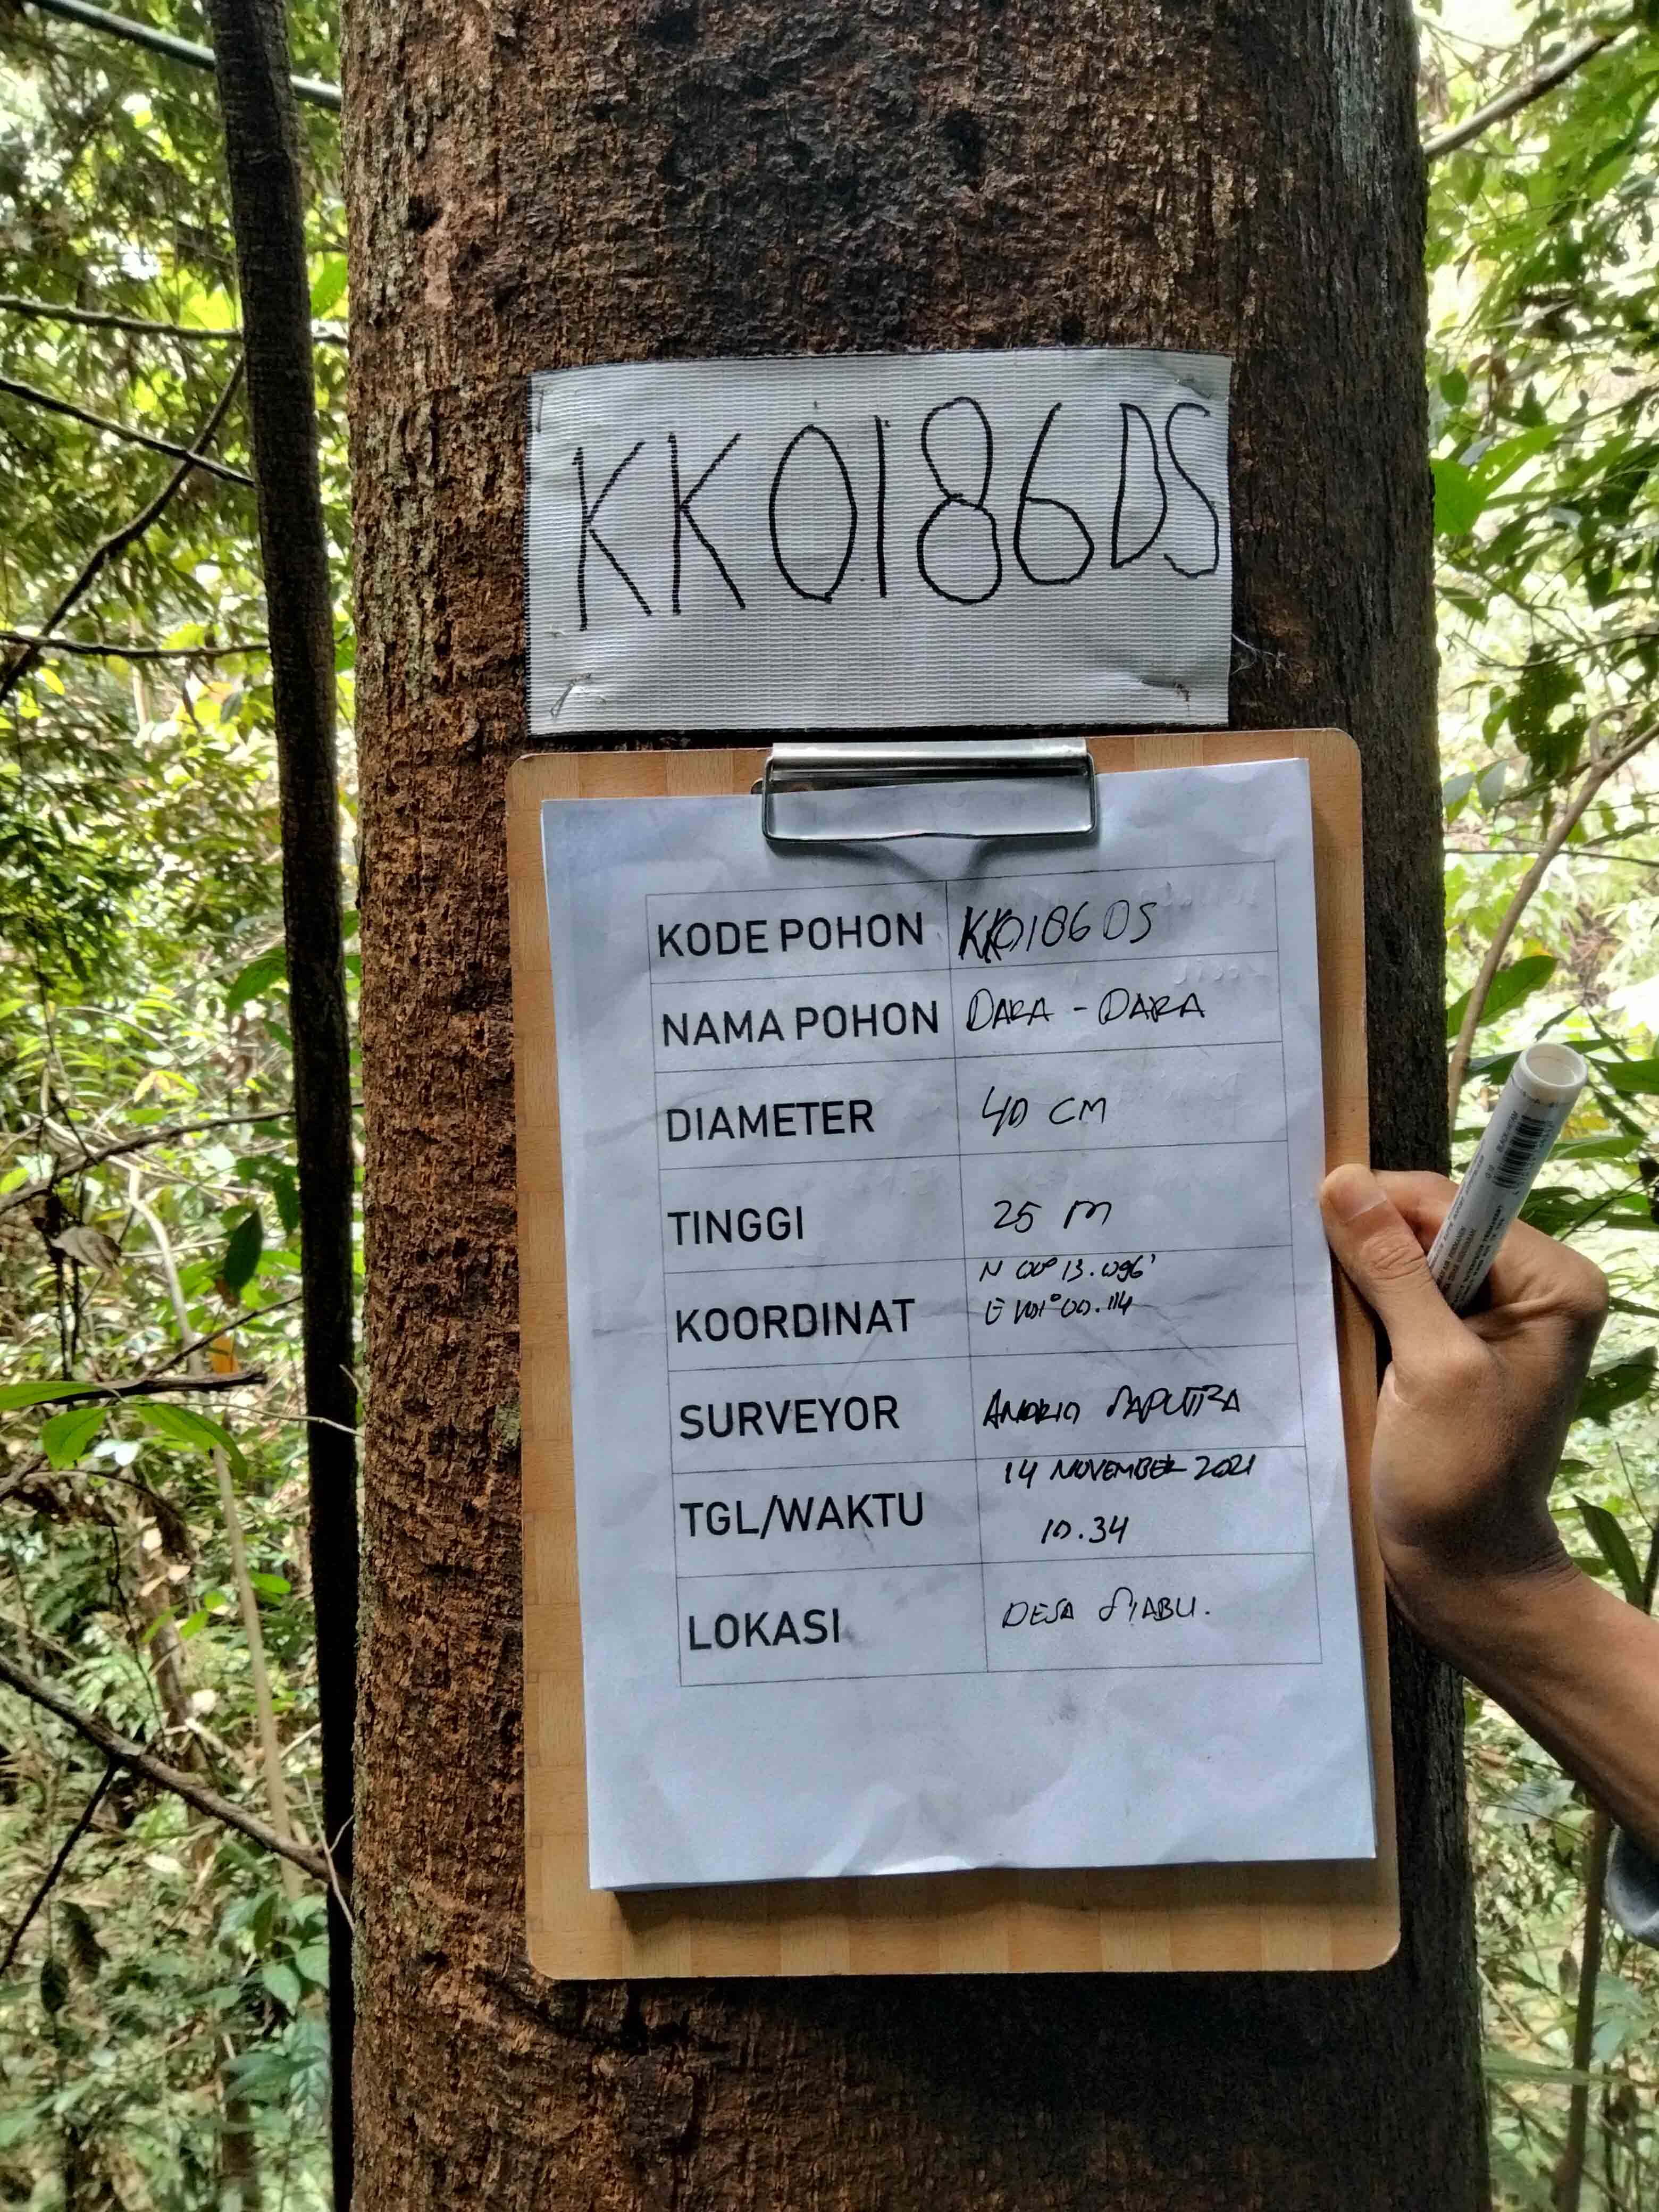 KK0186DS
KODE POHON KK0186 DS
NAMA POHON DARA - DARA
DIAMETER 40 CM
TINGGI 25 M
KOORDINAT N 00° 13.096'
E 101° 00.114
SURVEYOR SAPUTRA
TGL/WAKTU 14 NOVEMBER 2021
10.34
LOKASI DESA SIABU.